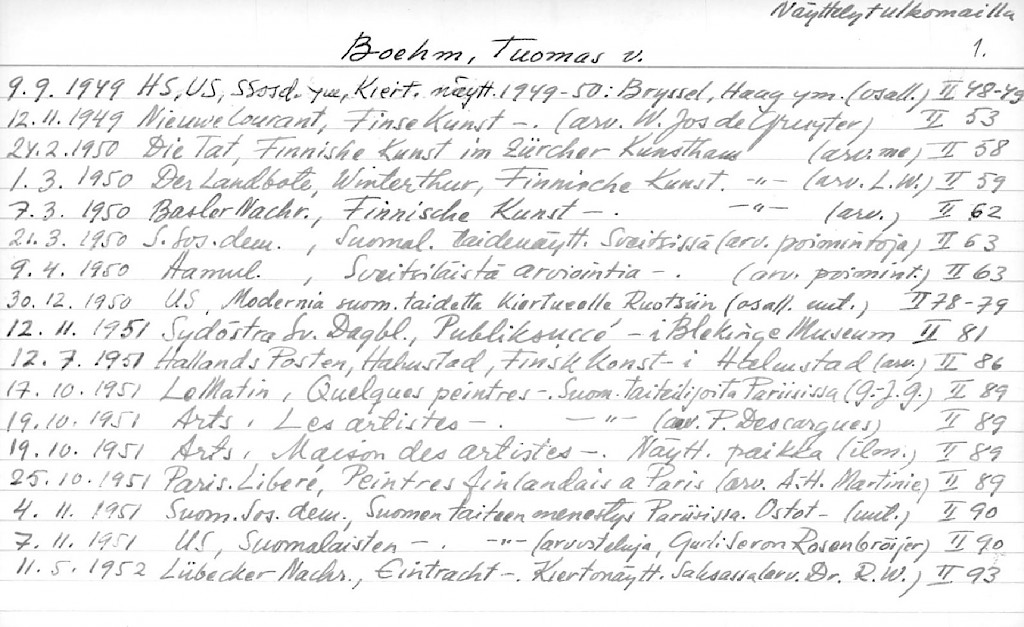 Näyttelyt ulkomailla
Boehm, Tuomas v. 1.
9.9.1949 HS, US, SSosd. ym, Kiert. näytt. 1949-50: Bryssel, Haag ym. (osall.) II 48-49
12.11.1949 Nieuwe Courant, Finse Kunst -. (arv. W. Jos de Gruyter) II 53
24.2.1950 Die Tat, Finnishe Kunst im Zürcher Kunsthaus (arv. me) II 58
1.3.1950 Der Landbote, Winterthur, Finnische Kunst. -"- (arv. L.W.) II 59
7.3.1950 Basler Nachr., Finnische Kunst -. -"- (arv.) II 62
21.3.1950 S. Sos. dem., Suomal. taidenäytt. Sveitsissä (arv. poimintoja) II 63
9.4.1950 Hämul., Sveitsiläistä arviointia -. (arv. poimint.) II 63
30.12.1950 US, Modernia suom. taidetta kiertueelle Ruotsiin (osall. uut.) II 78-79
12.11.1951 Sydöstra Sv. Dagbl., Publiksuccé - i Blekinge Museum II 81
12.7.1951 Hallands Posten, Halmstad, Finsk Konst - i Halmstad (arv.) II 86
17.10.1951 Le Matin, Quelques peintres -. Suom. taiteilijoita Pariisissa (G.-J.G.) II 89
19.10.1951 Arts, Les artistes -. -"- (arv. P. Descargues) II 89
19.10.1951 Arts, Maison des artistes -. Näytt. paikka (ilm.) II 89
25.10.1951 Paris. Liberé, Peintres finlandais a Paris (arv. A.H. Martinie) II 89
4.11.1951 Suom. Sos. dem., Suomen taiteen menestys Pariisissa. Ostot - (uut.) II 90
7.11.1951 US, Suomalaisten -. -"- (arvosteluja, Gurli Seron Rosenbröijer) II 90
11.5.1952 Lübecker Nachr., Eintracht -. Kiertonäytt. Saksassa (arv. Dr. R.W.) II 93